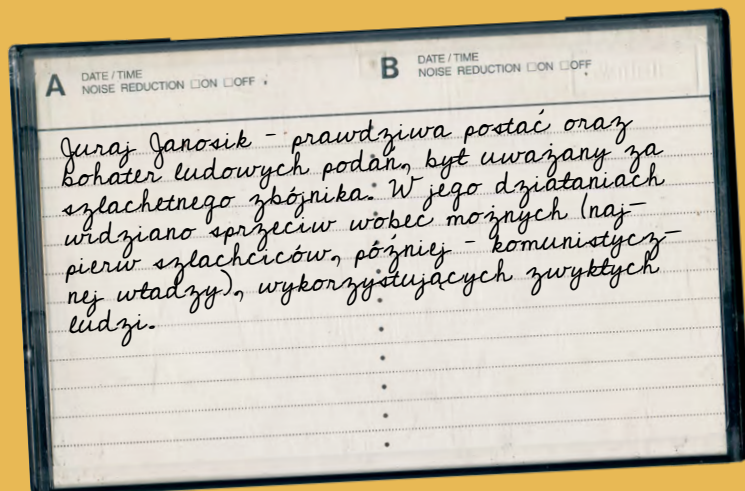 A DATE / TIME
NOISE REDUCTION □ON □OFF
B DATE / TIME
NOISE REDUCTION □ON □OFF
Juraj Janosik – prawdziwa postać oraz
bohater ludowych podań, był uważany za
szlachetnego zbójnika. W jego działaniach
widziano sprzeciw wobec możnych (naj-
pierw szlachciców, później – komunistycz-
nej władzy), wykorzystujących zwykłych
ludzi.